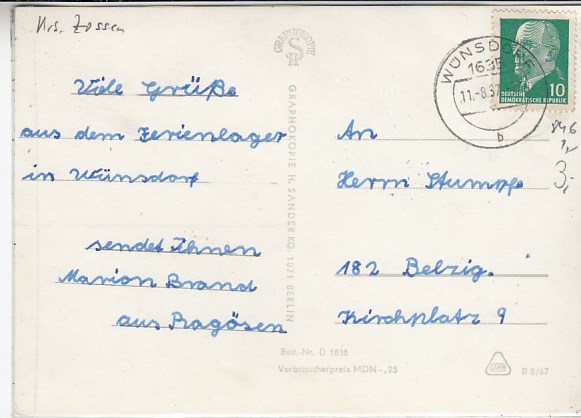 Krs. Zossen
GRAPHOKOPIE
Viele Grüße
aus dem Ferienlager
in Wünsdorf
sendet Ihnen
Marion Brand
aus Ragösen
GRAPHOKOPIE H. SANDER KG. 1071 BERLIN
WÜNSDORF
1635
11.-8.67
b
10
DEUTSCHE
DEMOKRATISCHE REPUBLIK
An
Herrn Stumpfe
182 Belzig.
Kirchplatz 9
846
1,-
3,-
Best.-Nr. D 1838
Verbraucherpreis MDN -,25
B 6/67